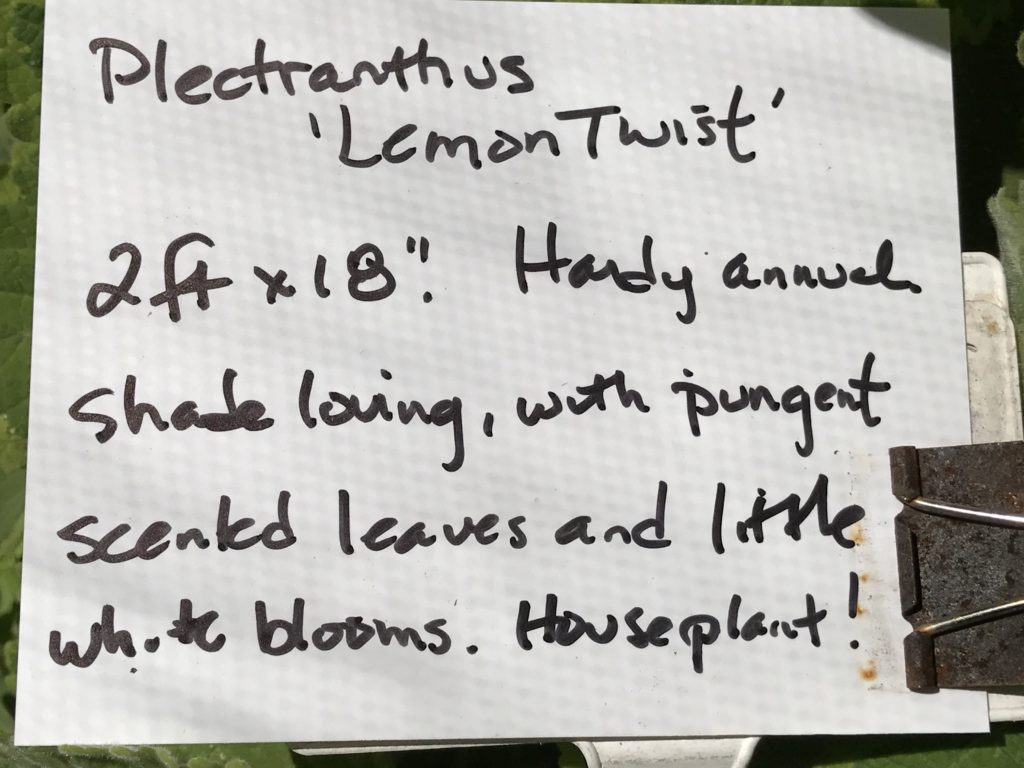 Plectranthus
'Lemon Twist'
2ft x 18". Hardy annual.
shade loving, with pungent
scented leaves and little
white blooms. Houseplant!